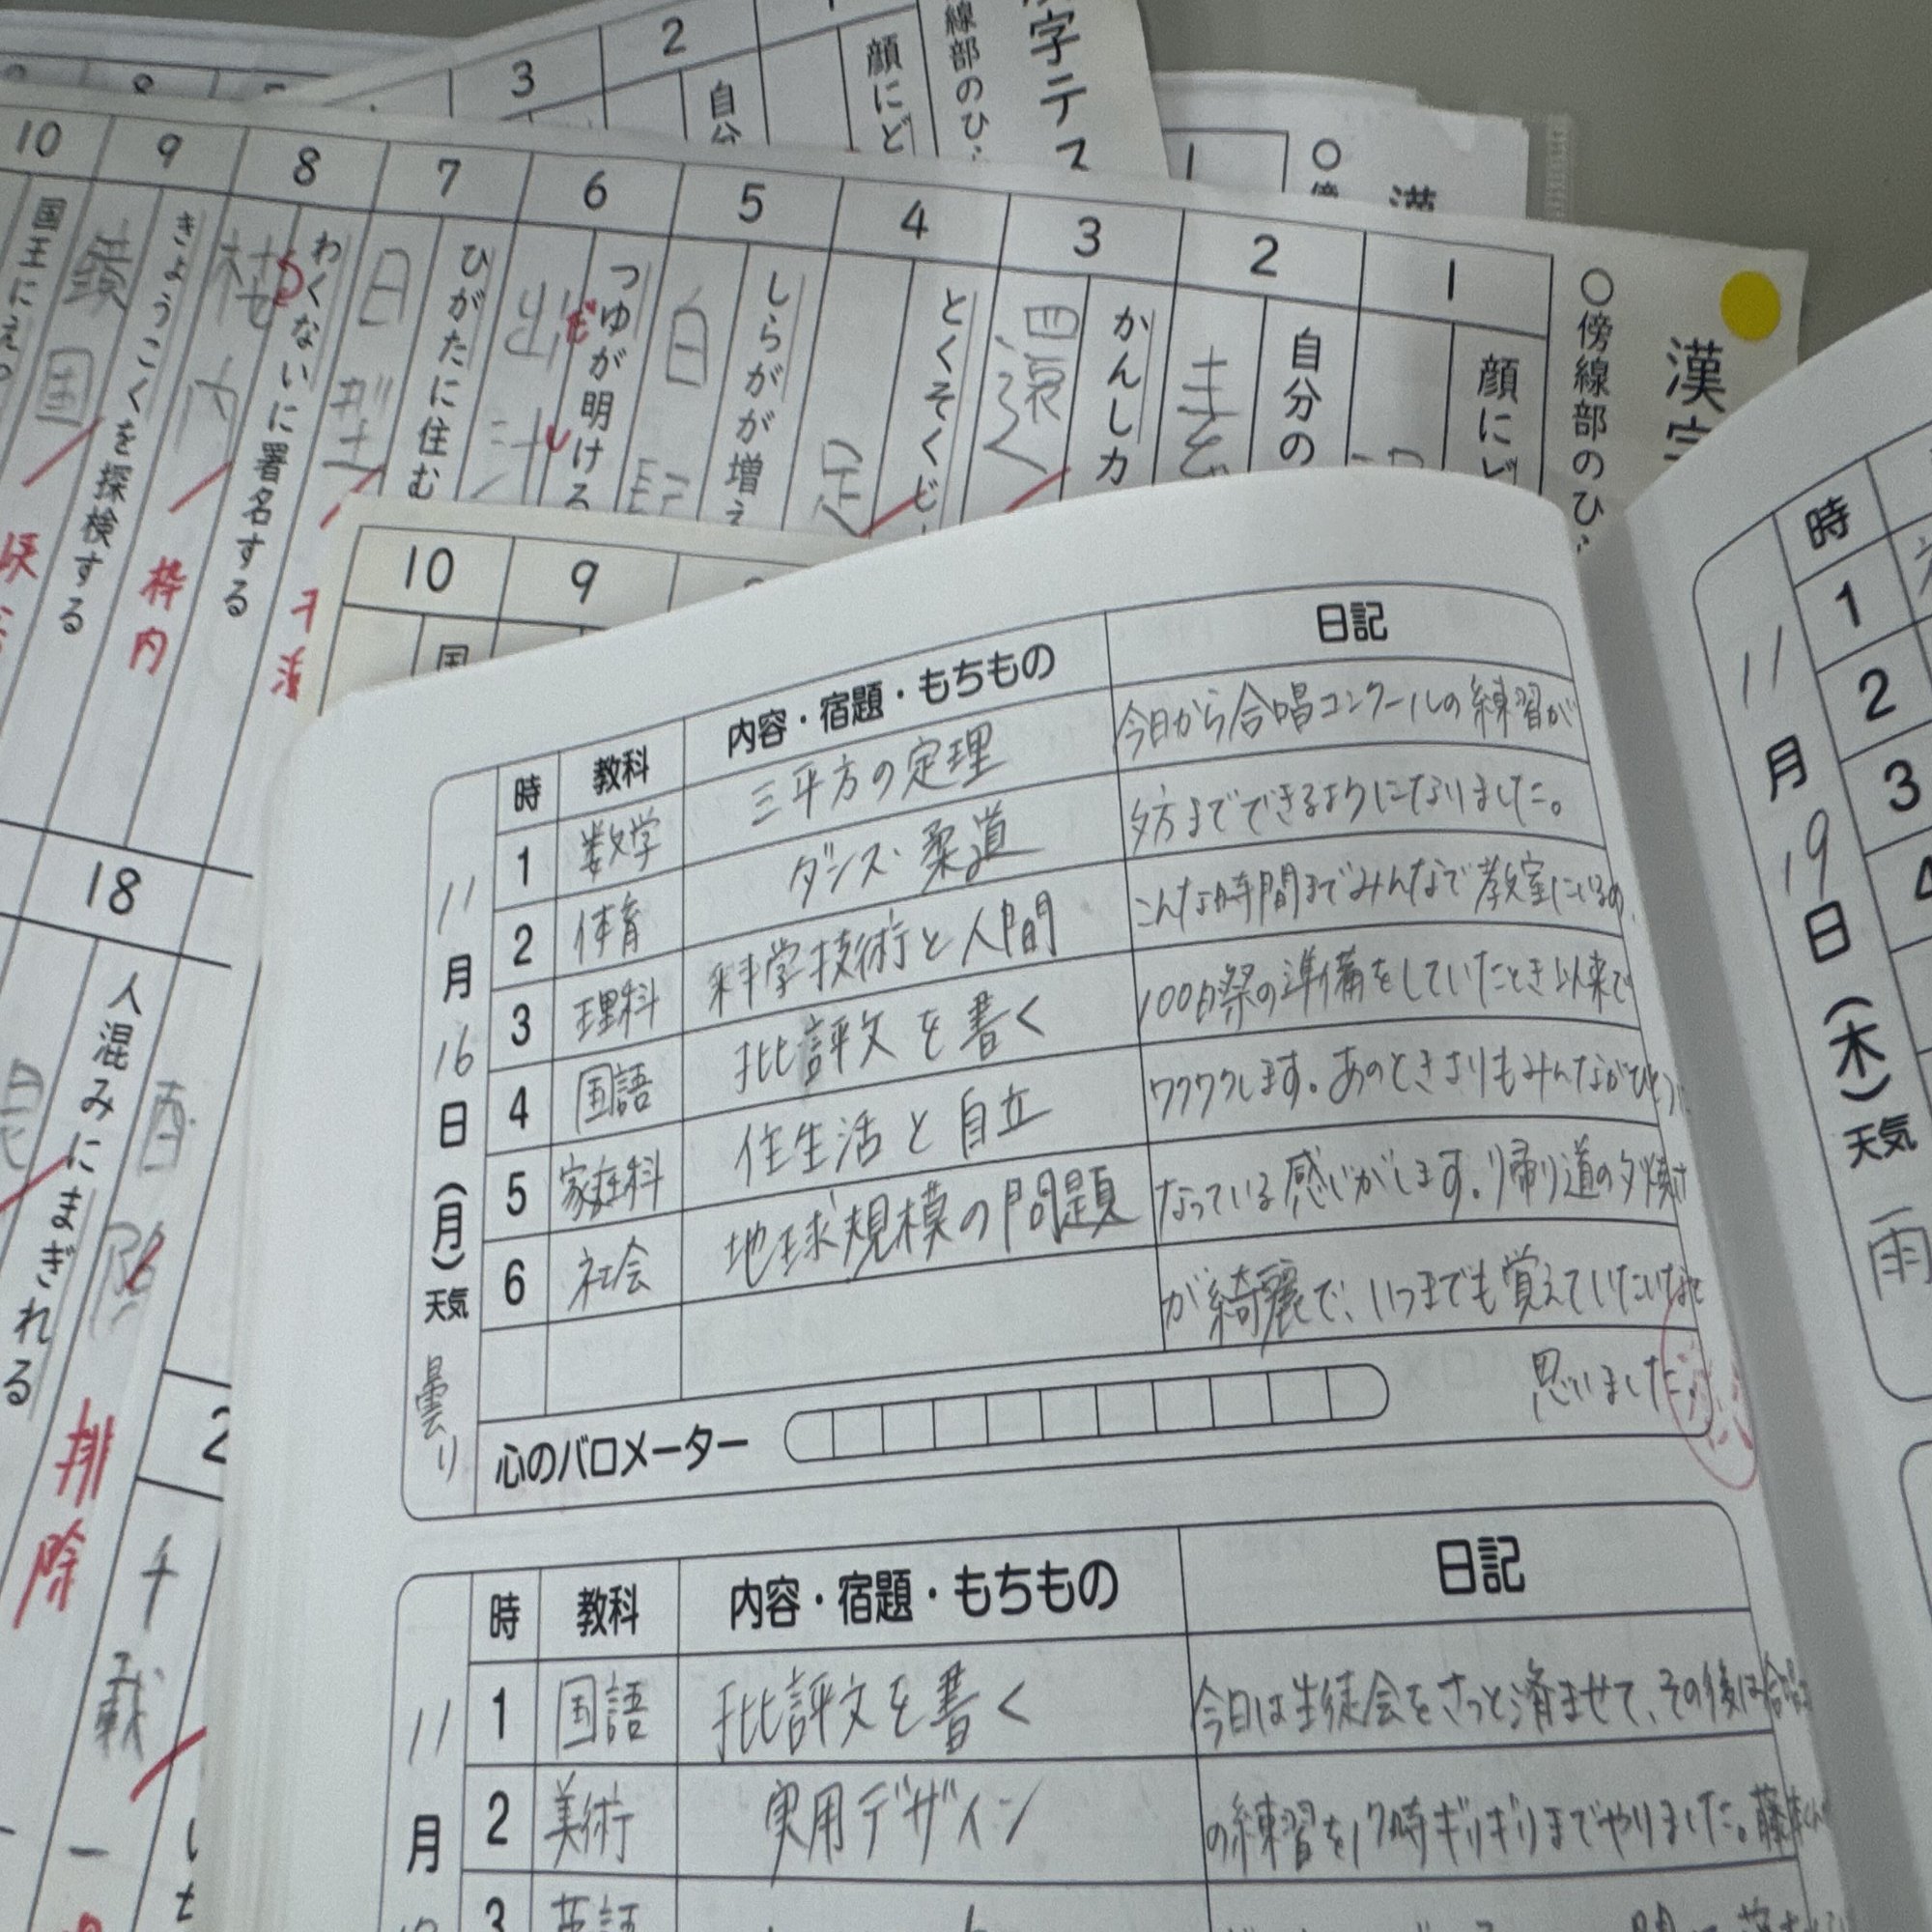 3
2
自分
顔にど
線部のひ
字テス
1
○傍
漢
漢字
○傍線部のひ
1
顔にど
2
自分の
3
かんしカ
還
4
とくそくじ
足
5
しらがが増え
白
6
つゆが明ける
出汁
7
ひがたに住む
日
8
わくないに署名する
内
枠内
9
きょうこくを探検する
国
10
国王にえ
18
人混みにまぎれる
排除
2
10
9
国
時
教科
内容・宿題・もちもの
日記
11月16日(月)天気 曇り
1 数学 三平方の定理
2 体育 ダンス・柔道
3 理科 科学技術と人間
4 国語 批評文を書く
5 家庭科 住生活と自立
6 社会 地球規模の問題
今日から合唱コンクールの練習が
夕方までできるようになりました。
こんな時間までみんなで教室にいるの
100日祭の準備をしていたとき以来で
ワクワクします。あのときよりもみんながひとつに
なっている感じがします。帰り道の夕焼け
が綺麗で、いつまでも覚えていたいなと
思いました。
心のバロメーター
時
教科
内容・宿題・もちもの
日記
11月
1 国語 批評文を書く
2 美術 実用デザイン
3 英語
今日は生徒会をさっと済ませて、その後は合唱
の練習を17時ギリギリまでやりました。藤本くん
時
1
2
3
4
11月19日(木)天気 雨